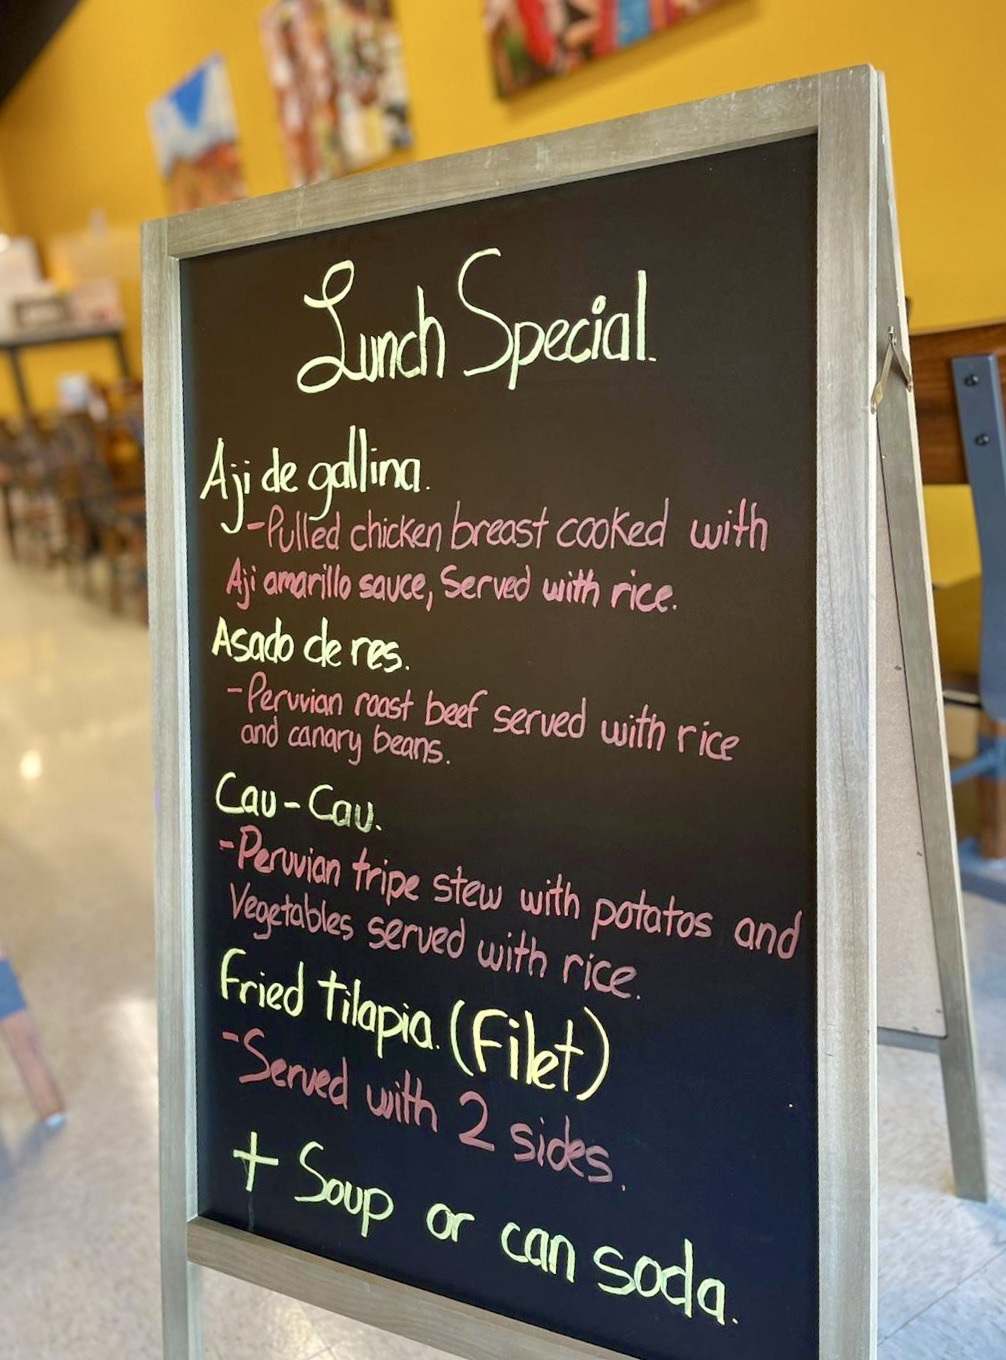 Lunch Special.
Aji de gallina.
-Pulled chicken breast cooked with
Aji amarillo sauce, Served with rice.
Asado de res.
-Peruvian roast beef served with rice
and canary beans.
Cau-Cau.
-Peruvian tripe stew with potatos and
Vegetables served with rice.
Fried tilapia. (Filet)
-Served with 2 sides.
+ Soup or can soda.